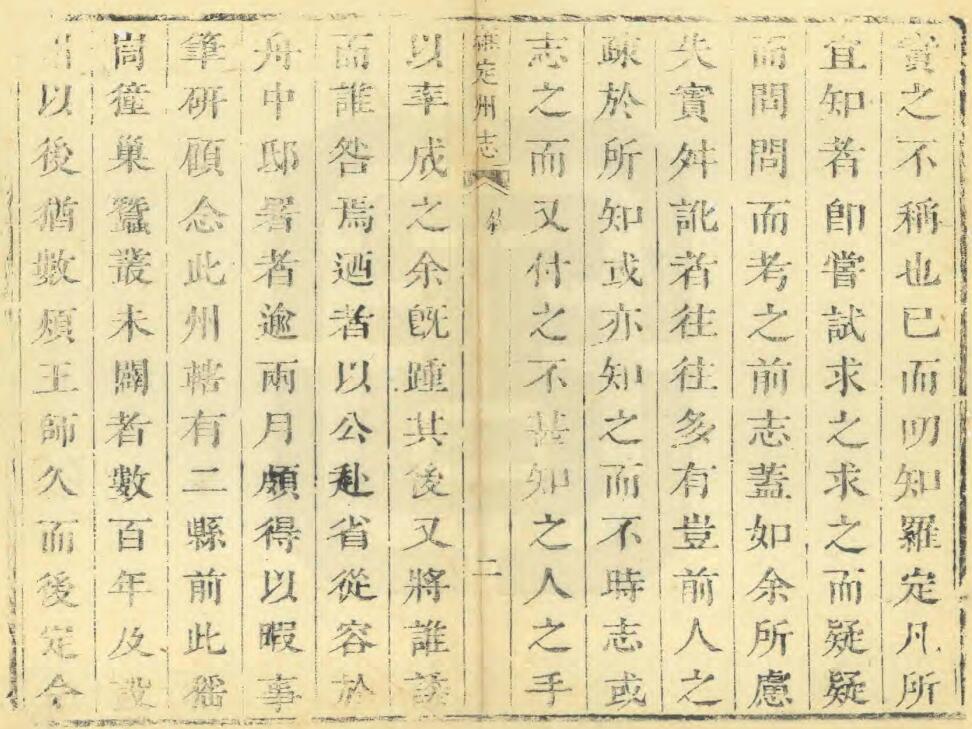 實之不稱也已而明知羅定凡所
宜知者卽嘗試求之求之而疑疑
而問問而考之前志蓋如余所慮
失實舛訛者往往多有豈前人之
疎於所知或亦知之而不時志或
志之而又付之不甚知之人之手
定州志
二
以率成之余旣踵其後又將誰諉
而誰咎焉迺者以公赴省從容於
舟中邸署者逾兩月頗得以暇事
筆研顧念此州轄有二縣前此猺
峝獞巢蠶叢未闢者數百年及設
以後猶數煩王師久而後定今